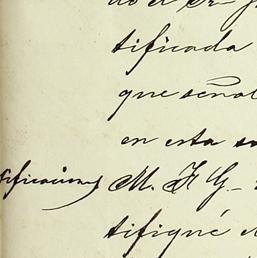 do el Sr
tificada
que señal
en esta
tificacions M. F G.
tifiqué